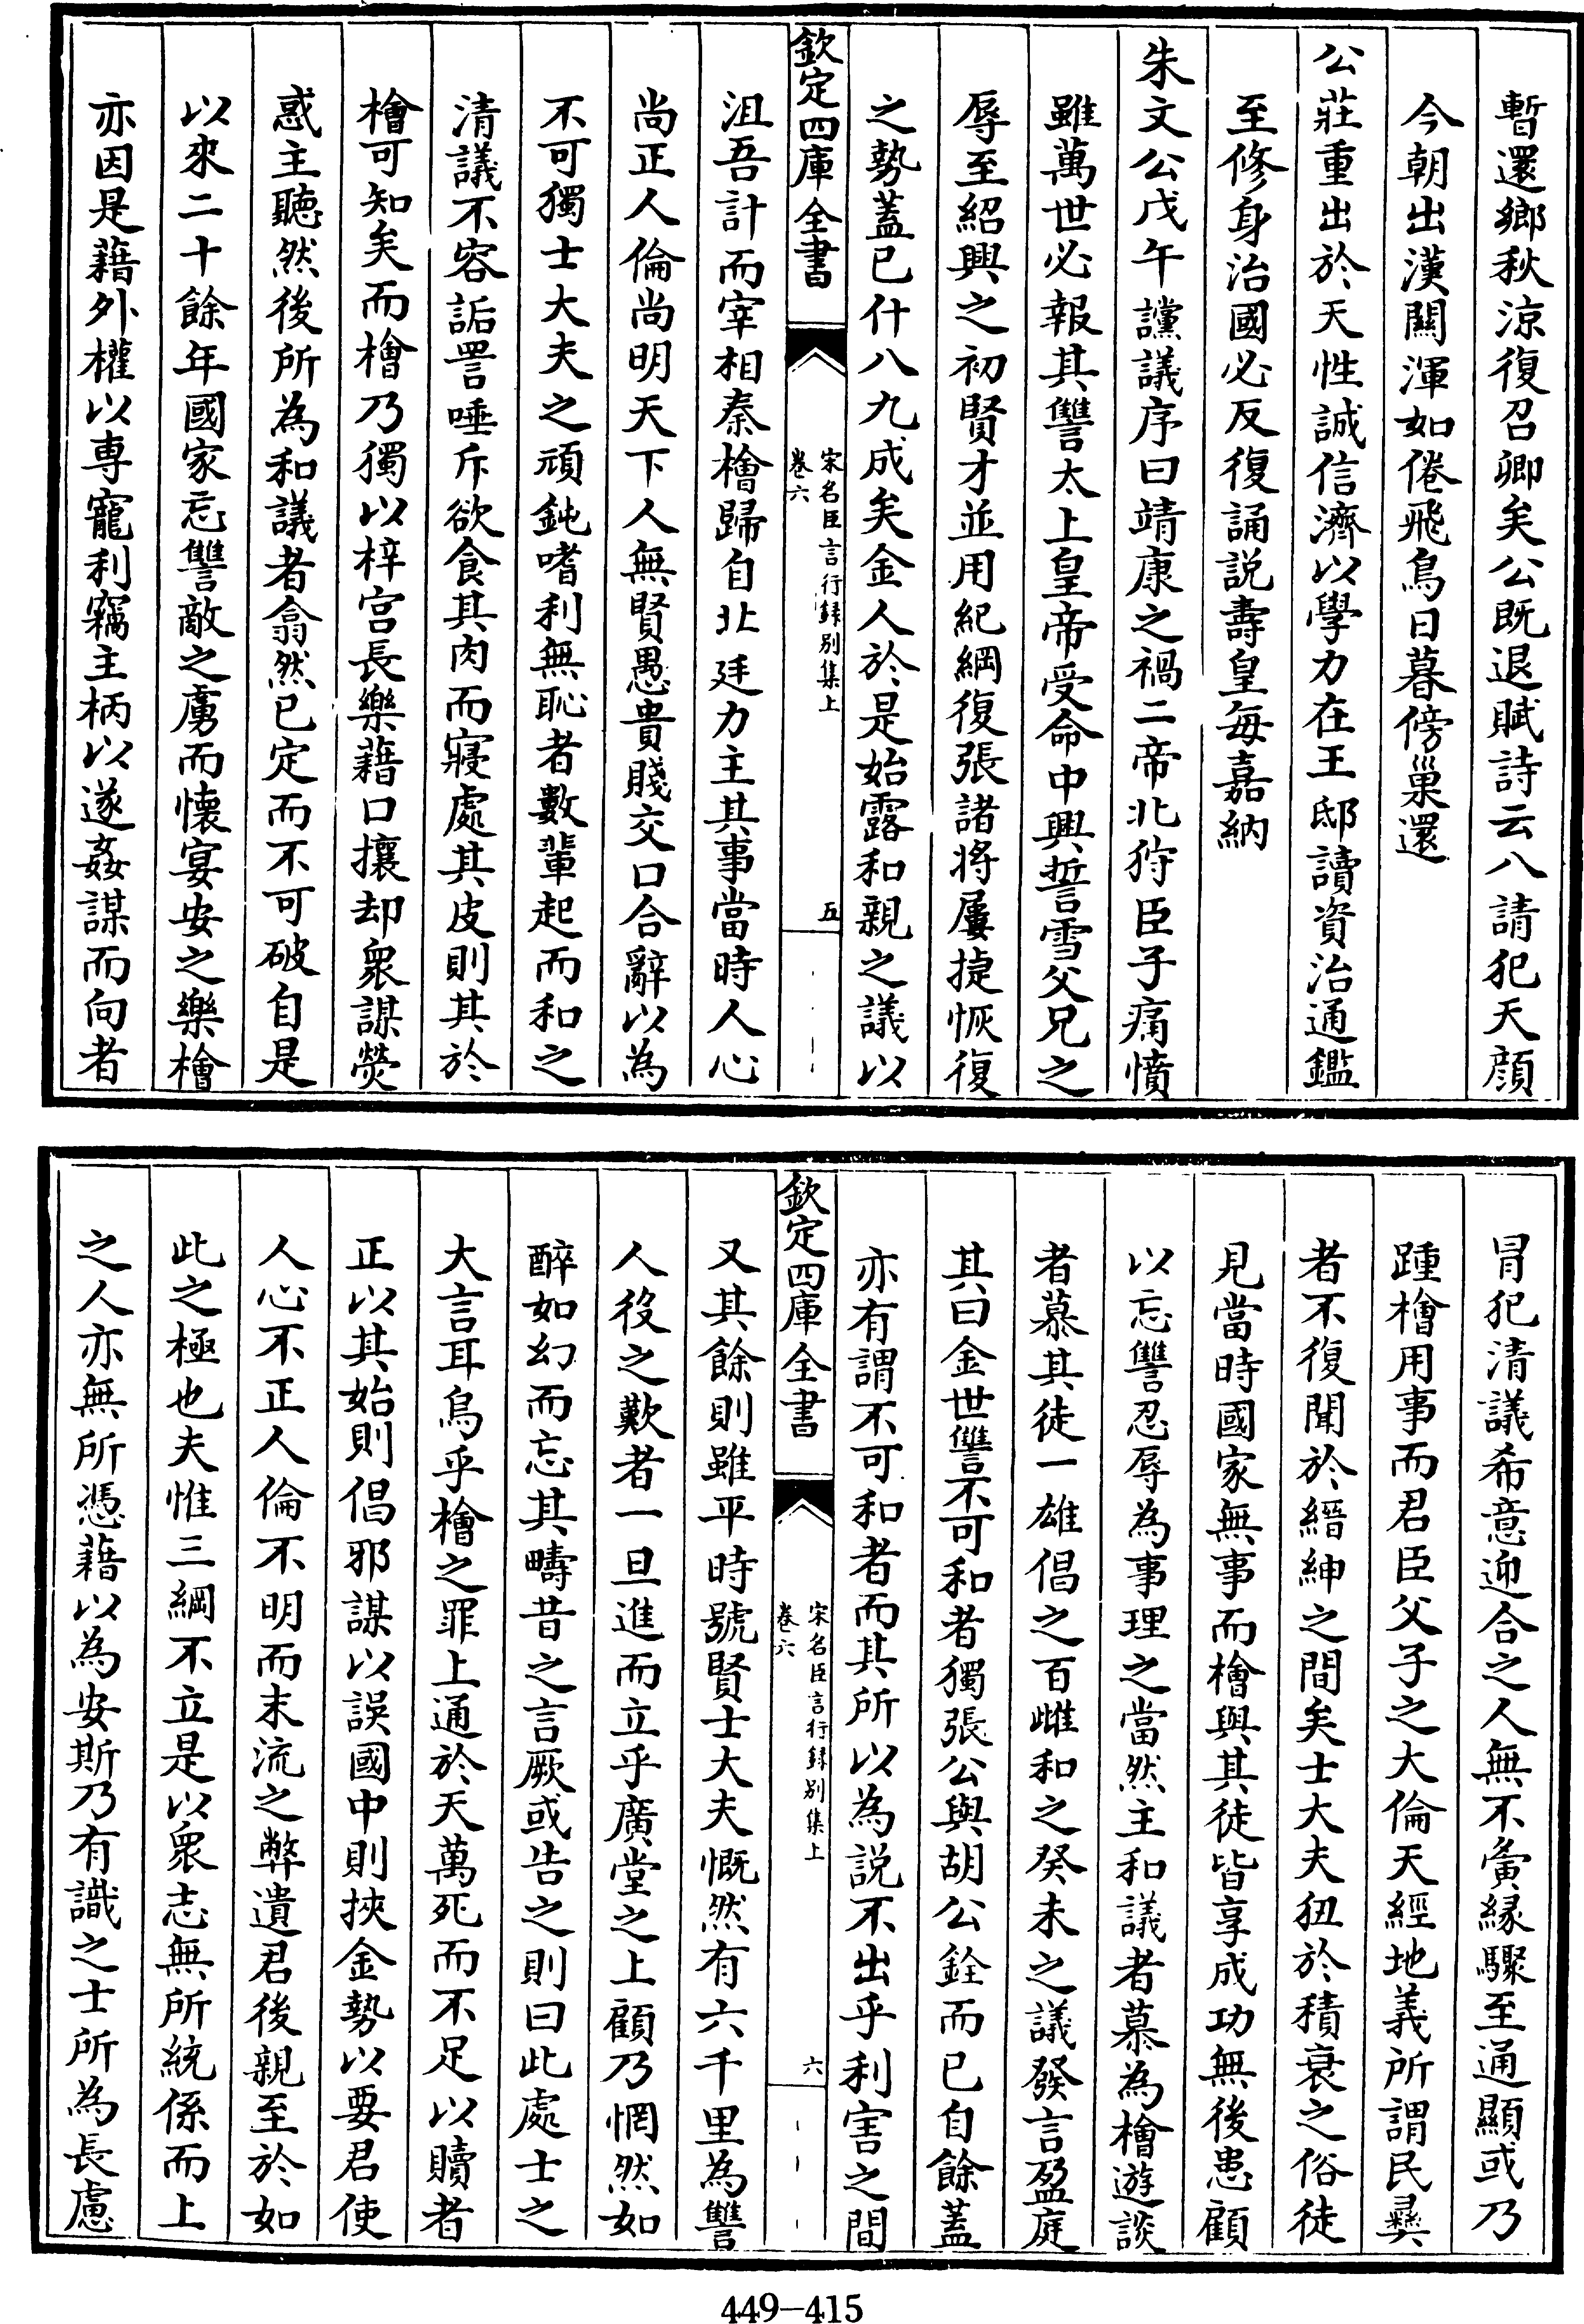 暫還鄉秋涼復召卿矣公既退賦詩云八請犯天顔
今朝出漢關渾如倦飛鳥日暮傍巢還
公莊重出於天性誠信濟以學力在王邸讀資治通鑑
至修身治國必反復誦説壽皇每嘉納
朱文公戊午讜議序曰靖康之禍二帝北狩臣子痛憤
雖萬世必報其讐太上皇帝受命中興誓雪父兄之
辱至紹興之初賢才並用紀綱復張諸將屢捷恢復
之勢蓋已什八九成矣金人於是始露和親之議以
欽定四庫全書
宋名臣言行録别集上
卷六
五
沮吾計而宰相秦檜歸自北廷力主其事當時人心
尚正人倫尚明天下人無賢愚貴賤交口合辭以為
不可獨士大夫之頑鈍嗜利無恥者數輩起而和之
清議不容詬詈唾斥欲食其肉而寢處其皮則其於
檜可知矣而檜乃獨以梓宫長樂藉口攘却衆謀熒
惑主聽然後所為和議者翕然已定而不可破自是
以來二十餘年國家忘讐敵之虜而懷宴安之樂檜
亦因是藉外權以専寵利竊主柄以遂姦謀而向者
冒犯清議希意迎合之人無不夤縁驟至通顯或乃
踵檜用事而君臣父子之大倫天經地義所謂民彞
者不復聞於縉紳之間矣士大夫狃於積衰之俗徒
見當時國家無事而檜與其徒皆享成功無後患顧
以忘讐忍辱為事理之當然主和議者慕為檜遊談
者慕其徒一雄倡之百雌和之癸未之議發言盈庭
其曰金世讐不可和者獨張公與胡公銓而已自餘蓋
亦有謂不可和者而其所以為説不出乎利害之間
欽定四庫全書
宋名臣言行録别集上
卷六
六
又其餘則雖平時號賢士大夫慨然有六千里為讐
人役之歎者一旦進而立乎廣堂之上顧乃惘然如
醉如幻而忘其疇昔之言厥或告之則曰此處士之
大言耳烏乎檜之罪上通於天萬死而不足以贖者
正以其始則倡邪謀以誤國中則挾金勢以要君使
人心不正人倫不明而末流之弊遺君後親至於如
此之極也夫惟三綱不立是以衆志無所統係而上
之人亦無所憑藉以為安斯乃有識之士所為長慮
449-415